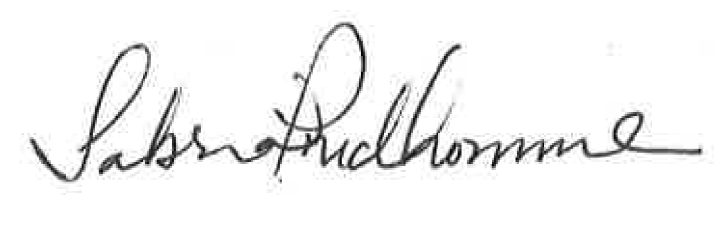 Sabrina Prudhomme